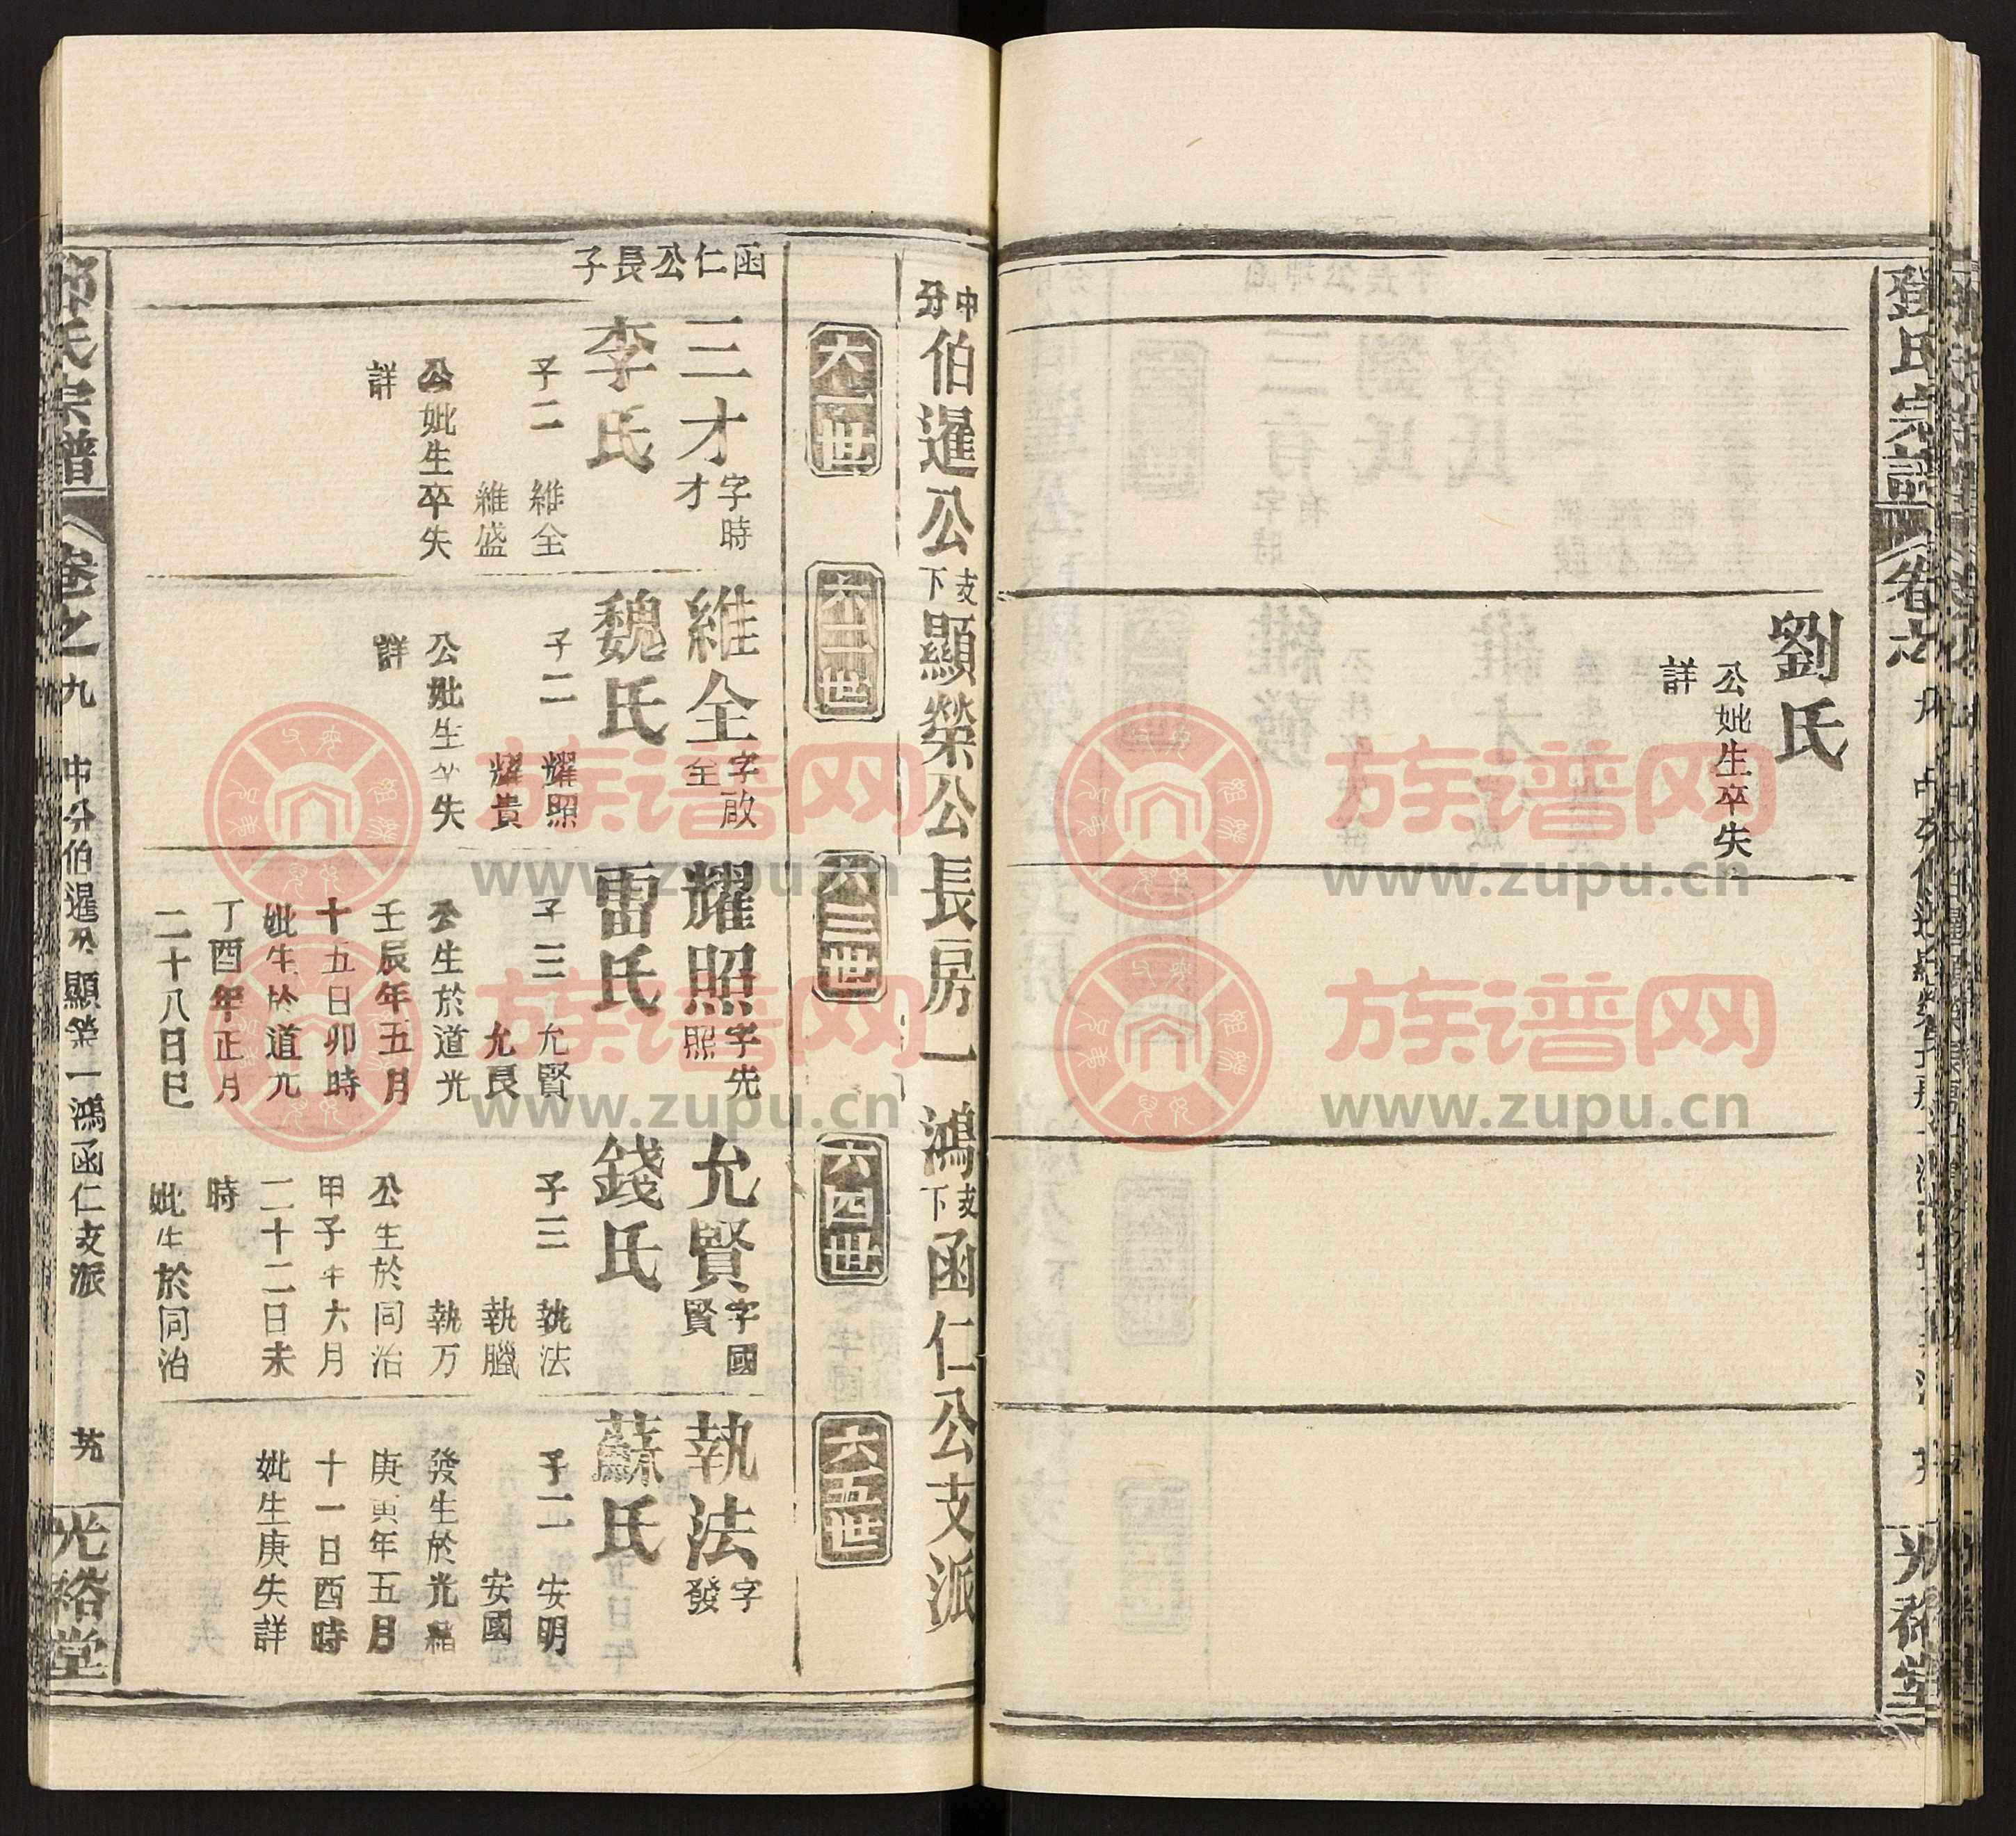 鄧氏宗譜
劉氏
公妣生卒失
詳
中分伯暹公支下顯榮公長房一鴻支下函仁公支派
六一世
六二世
六三世
六四世
六五世
函仁公長子
三才字時才
李氏
子二 維全
維盛
公妣生卒失
詳
維全字啟全
魏氏
子二 耀照
耀貴
公妣生卒失
詳
耀照字先照
雷氏
子三 允賢
允良
公生於道光
壬辰年五月
十五日卯時
妣生於道光
丁酉年正月
二十八日巳
允賢字國賢
錢氏
子三 執法
執臘
執万
公生於同治
甲子年六月
二十二日未
時
妣生於同治
執法字發
蘇氏
子二 安明
安國
發生於光緒
庚寅年五月
十一日酉時
妣生庚失詳
鄧氏宗譜 卷之九 中分伯暹公顯榮一鴻函仁支派 光裕堂
族谱网
www.zupu.cn
族谱网
www.zupu.cn
族谱网
www.zupu.cn
族谱网
www.zupu.cn